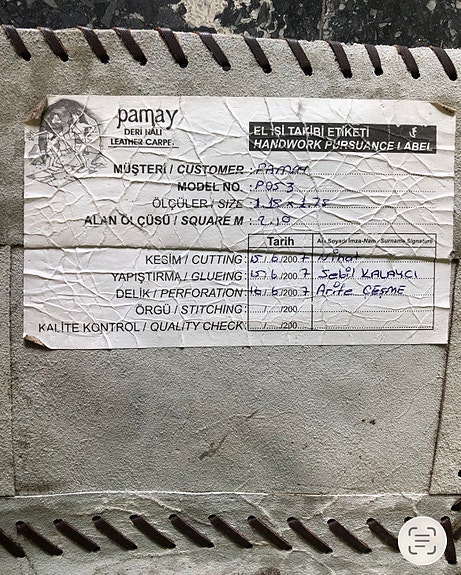 pamay
DERİ HALI
LEATHER CARPET
EL İŞİ TAKİBİ ETİKETİ
HANDWORK PURSUANCE LABEL
MÜŞTERİ / CUSTOMER : PAMAY
MODEL NO. : P053
ÖLÇÜLER / SIZE : 1.18 x 1.78
ALAN ÖLÇÜSÜ / SQUARE M : 2.10
Tarih Adı Soyadı İmza-Name / Surname Signature
KESİM / CUTTING: 15/6/2007
YAPIŞTIRMA / GLUEING: 15/6/2007 Sebil KALAYCI
DELİK / PERFORATION: 16/6/2007 Arife ÇEŞME
ÖRGÜ / STITCHING: ..../..../200
KALİTE KONTROL / QUALITY CHECK: ..../..../200